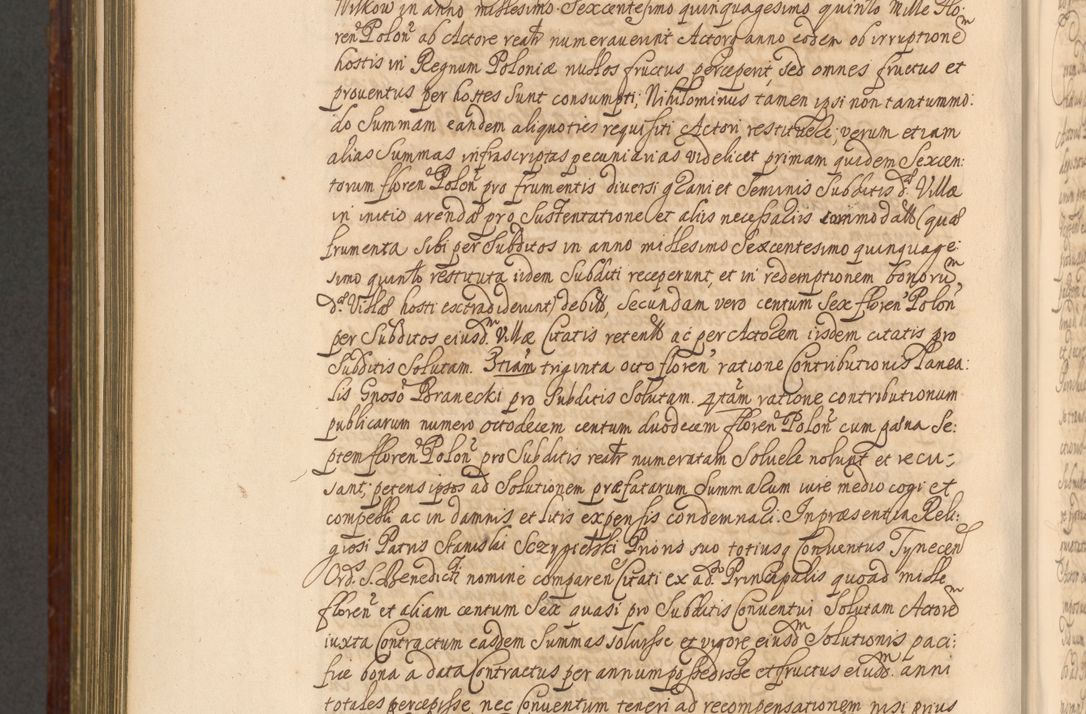 Wilkow in anno millesimo Sexcentesimo quinquagesimo quinto Mille Flo:
ren: Polon: ab Actore realr numeraverint Actorq anno eodem ob irruptionem
hostis in Regnum Poloniæ nullos fructus perceperit, sed omnes fructus et
proventus per hostes sunt consumpti; Nihilominus tamen ipsi non tantummo:
do Summam eandem aliquoties requisiti Actori restituere; verum etiam
alias Summas infrascriptas pecuniarias videlicet primam quidem Sexcen:
torum floren: Polon: pro frumentis diversi grani et Seminis Subditis d: Villæ
in initio arendæ pro Sustentatione et aliis necessariis commodatis (quæ
frumenta sibi per Subditos in anno millesimo Sexcentesimo quinquage:
simo quarto restituta iidem Subditi receperunt, et in redemptionem bonorum
d: Villæ hosti extradiderunt) debitis, Secundam vero centum Sex floren: Polon:
per Subditos eiusdm Villæ Citatis retentis ac per Actorem iisdem citatis pro
Subditis Solutam. 3tiam triginta octo floren: ratione Contributionis Lanea:
lis Gnoso Branecki pro Subditis Solutam. 4tam ratione contributionum
publicarum numero octodecem centum duodecem floren: Polon: cum gasna Se:
ptem floren: Polon: pro Subditis realr numeratam Solvere nolunt et recu:
sant; petens ipsos ad Solutionem præfatarum Summarum iure medio cogi et
compelli ac in damnis et litis expensis condemnari. In præsentia Reli:
giosi Patris Stanislai Sczygielski Prioris suo totiusq Conventus Tynecen
Ord: S. Benedicti nomine comparen: Citati ex ado Principalis quoad mille
floren: et aliam centum Sex quasi pro Subditis Conventui Solutam Actorem
iuxta Contractum easdem Summas solvisse et vigore eiusdm Solutionis paci:
fice bona a data Contractus per annum possedisse et fructus eiusdm anni
totales percepisse nec Conventum teneri ad recompensationem nisi prius